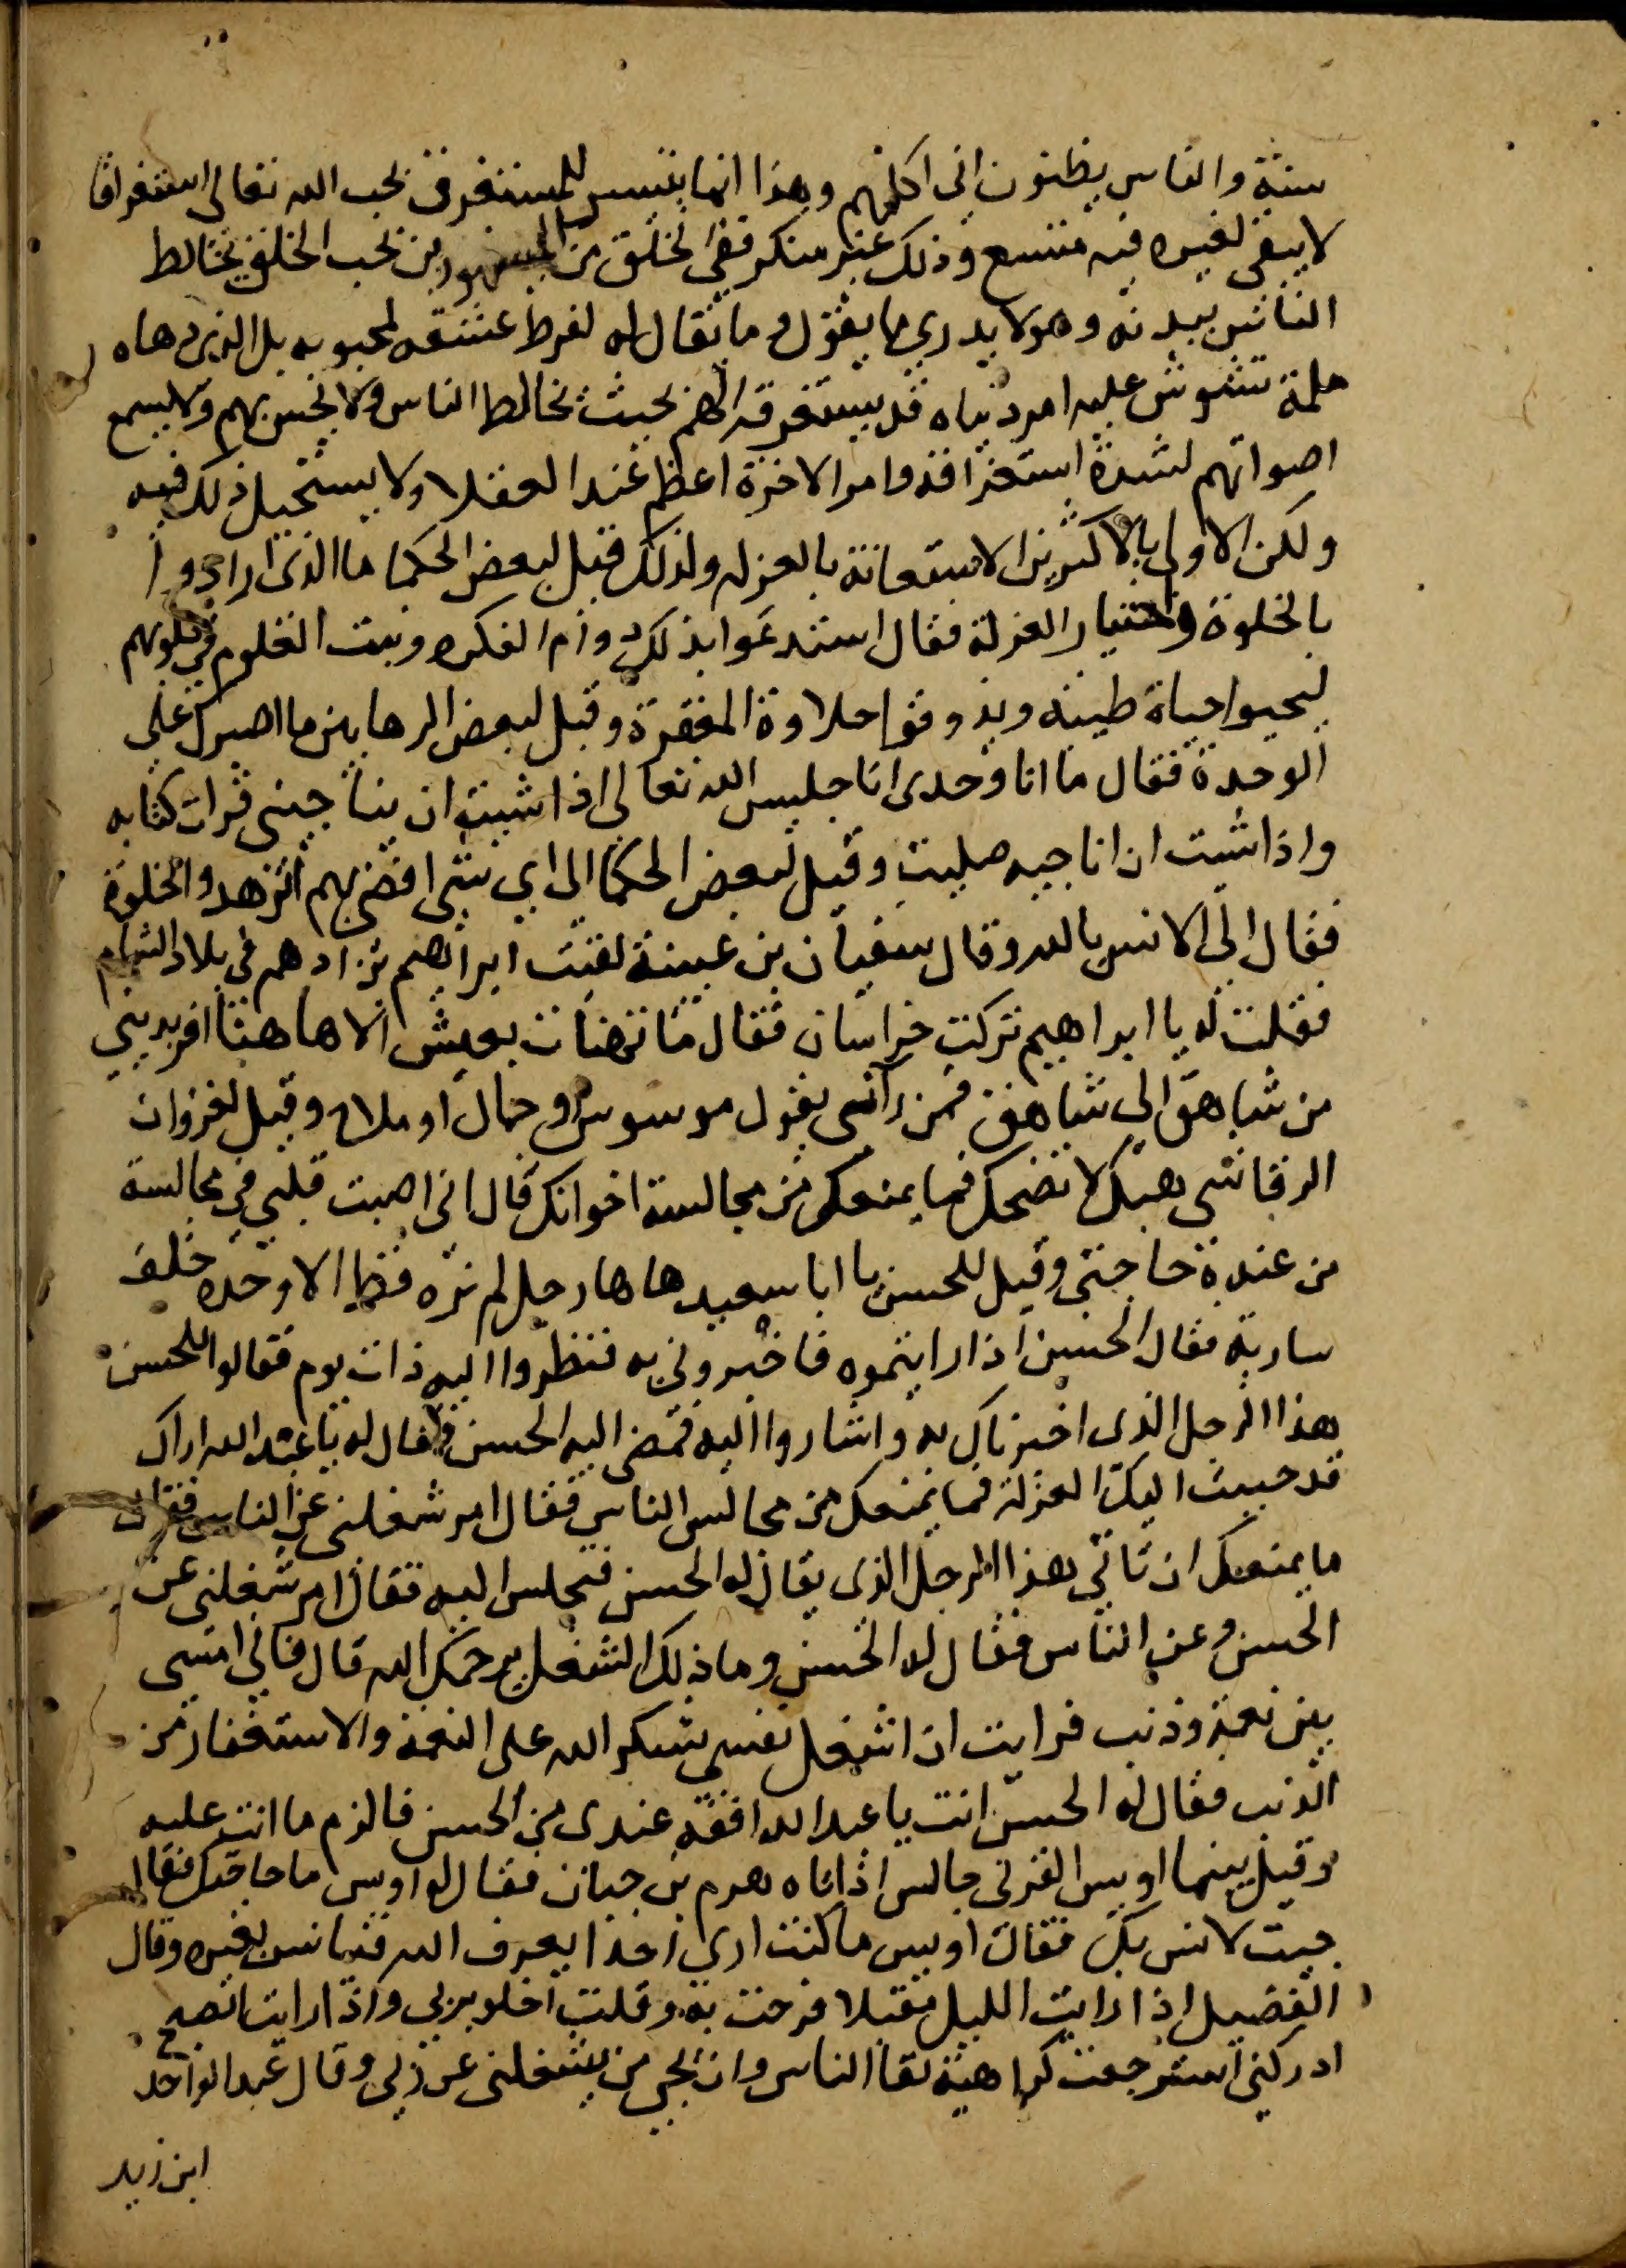 سنة والناس يظنون انى اكلمهم وهذا انما يتيسر للمستغرق بحب الله تعالى استغراقا
لا يبقى لغيره فيه متسع وذلك غير منكر ففى الخلق من المشهورين بحب الخلق يخالط
الناس ببدنه وهو لا يدري ما يقول وما يقال له لفرط عشقه لمحبوبه بل الذى دهاه
ملمة تشوش عليه امر دنياه قد يستغرقه الهم بحيث يخالط الناس ولا يحس بهم ولا يسمع
اصواتهم لشدة استغراقه وامر الاخرة اعظم عند العقلا ولا يستحيل ذلك فيه
ولكن الاولى بالاكثرين الاستعانة بالعزله ولذلك قيل لبعض الحكما ما الذى ارادوا
بالخلوة واختيار العزلة فقال استدعوا بذلك دوام الفكره وثبت العلوم فى قلوبهم
ليحيوا حياة طيبه ويذوقوا حلاوة المعرفة وقيل لبعض الرهابين ما اصبرك على
الوحدة فقال ما انا وحدى انا جليس الله تعالى اذا شيت ان يناجينى قرات كتابه
واذا شيت ان اناجيه صليت وقيل لبعض الحكما الى اي شى افضى بهم الزهد والخلوة
فقال الى الانس بالله وقال سفيان بن عيينة لقيت ابراهيم بن ادهم فى بلاد الشام
فقلت له يا ابراهيم تركت خراسان فقال ما تهنات بعيش الا هاهنا افر بديني
من شاهق الى شاهق فمن رآنى يقول موسوس او حمال او ملاح وقيل لغزوان
الرقاشى هبك لا تضحك فما يمنعك من مجالسة اخوانك قال انى اصبت قلبي فى مجالسة
من عنده حاجتى وقيل للحسن يا ابا سعيد هاهنا رجل لم نره قط الا وحده خلف
سارية فقال الحسن اذا رايتموه فاخبرونى به فنظروا اليه ذات يوم فقالوا للحسن
هذا الرجل الذى اخبرناك به واشاروا اليه فمضى اليه الحسن فقال له يا عبد الله اراك
قد حببت اليك العزلة فما يمنعك من مجالس الناس فقال امر شغلنى عن الناس فقال
ما يمنعك ان تاتي هذا الرجل الذى يقال له الحسن فتجلس اليه فقال امر شغلنى عن
الحسن وعن الناس فقال له الحسن وما ذلك الشغل يرحمك الله قال فانى امسى
بين نعمة وذنب فرايت ان اشغل نفسى بشكر الله على النعمة والاستغفار من
الذنب فقال له الحسن انت يا عبد الله افقه عندى من الحسن فالزم ما انت عليه
وقيل بينما اويس القرنى جالس اذ اتاه هرم بن حيان فقال له اويس ما حاجتك فقال
جيت لانس بك فقال اويس ما كنت ارى احدا يعرف الله فيانس بغيره وقال
الفضيل اذا رايت الليل مقبلا فرحت به وقلت اخلو بربي واذا رايت الصبح
ادركنى استرجعت كراهية لقا الناس وان يجى من يشغلنى عن ربي وقال عبد الواحد
ابن زيد